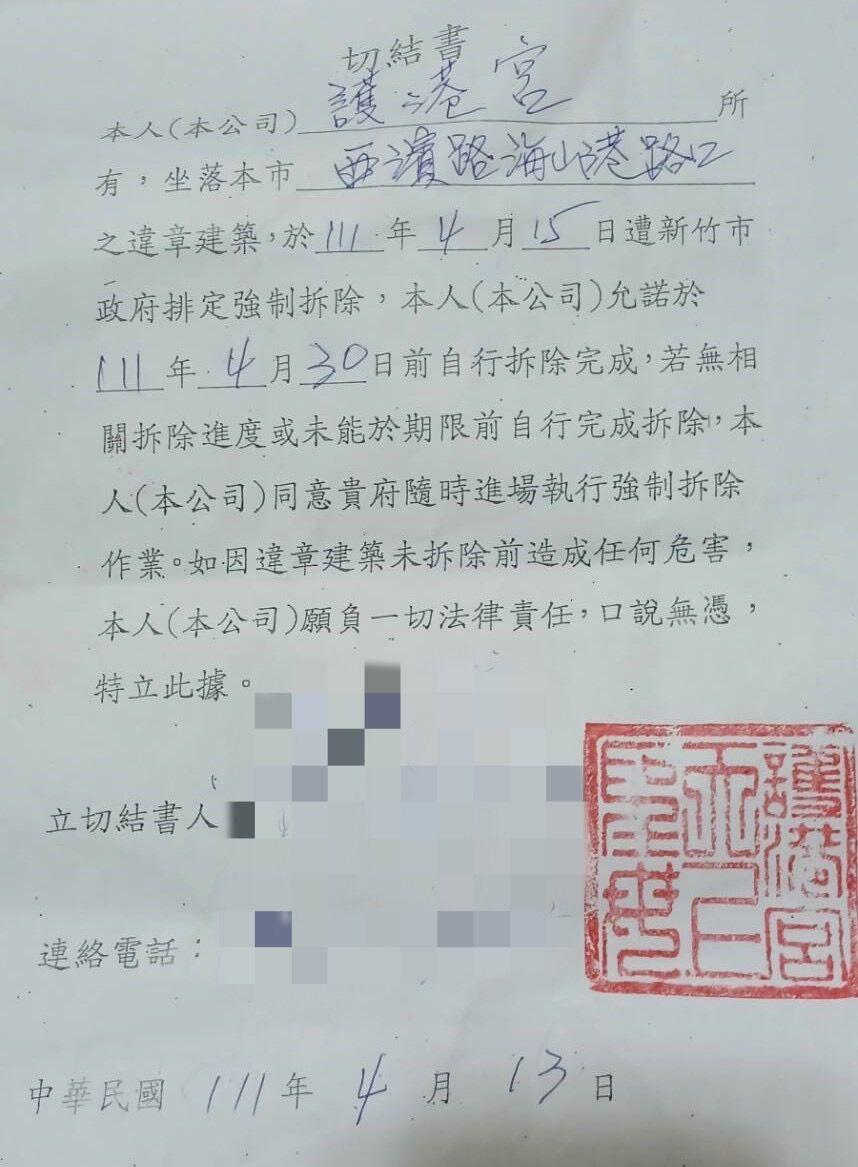 切結書
本人(本公司)護港宮所
有，坐落本市西濱路海山港路口
之違章建築，於111年4月15日遭新竹市
政府排定強制拆除，本人(本公司)允諾於
111年4月30日前自行拆除完成，若無相
關拆除進度或未能於期限前自行完成拆除，本
人(本公司)同意貴府隨時進場執行強制拆除
作業。如因違章建築未拆除前造成任何危害，
本人(本公司)願負一切法律責任，口說無憑，
特立此據。
立切結書人
連絡電話：
中華民國111年4月13日
護港宮